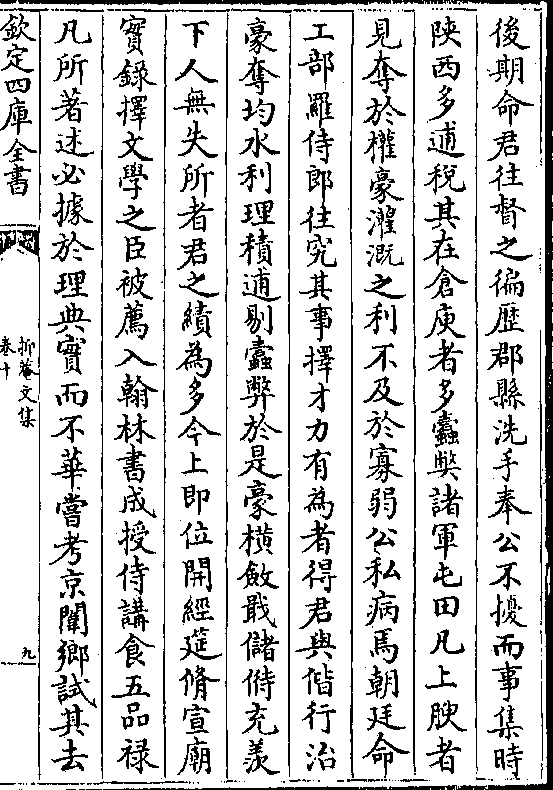 後期命君往督之徧歴郡縣洗手奉公不擾而事集時
陜西多逋稅其在倉庾者多蠧弊諸軍屯田凡上腴者
見奪於權豪灌溉之利不及於寡弱公私病焉朝廷命
工部羅侍郎往究其事擇才力有為者得君與偕行治
豪奪均水利理積逋剔蠧弊於是豪橫斂戢儲偫充羨
下人無失所者君之績為多今上即位開經筵脩宣廟
實錄擇文學之臣被薦入翰林書成授侍講食五品禄
凡所著述必據於理典實而不華嘗考京闈鄉試其去
欽定四庫全書
抑菴文集
卷十
九